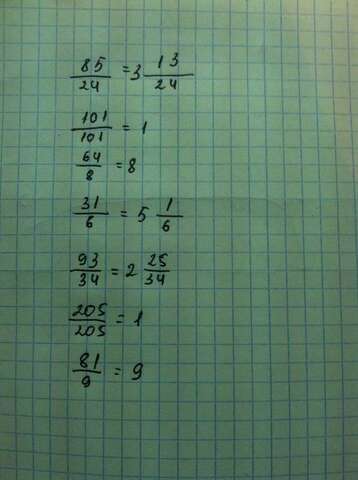 85/24 = 3 13/24
101/101 = 1
64/8 = 8
31/6 = 5 1/6
93/34 = 2 25/34
205/205 = 1
81/9 = 9